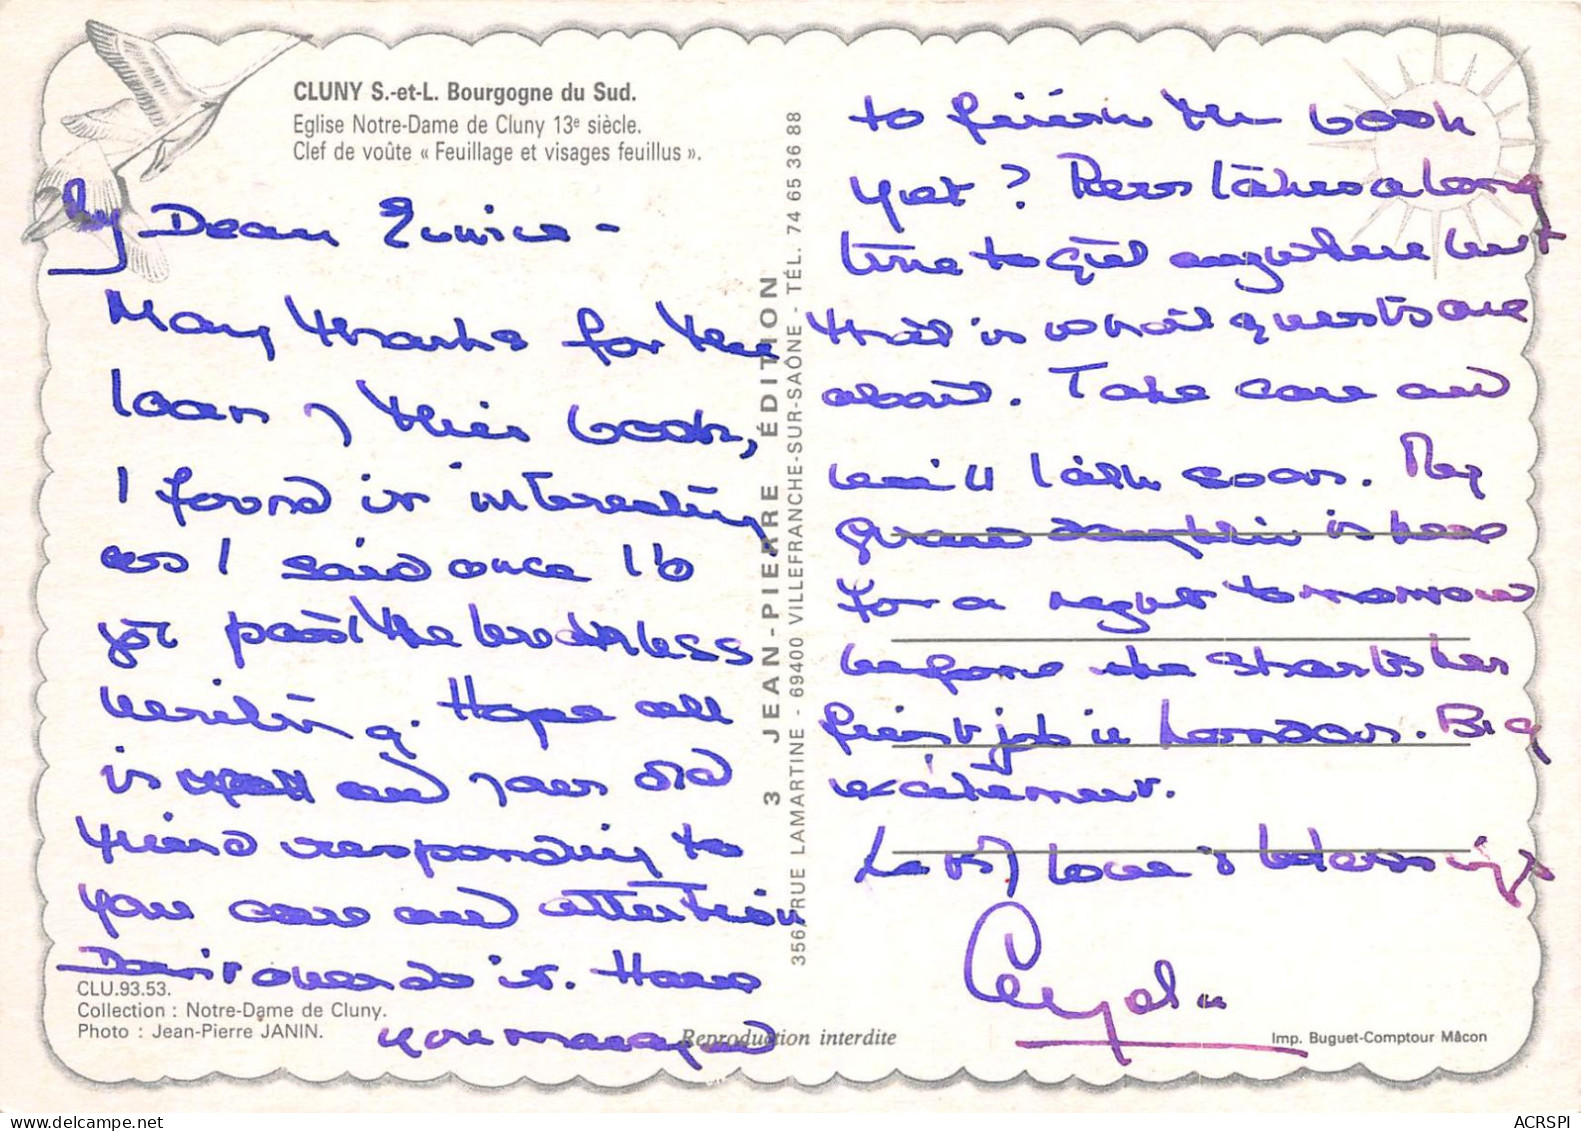 CLUNY S.-et-L. Bourgogne du Sud.
Eglise Notre-Dame de Cluny 13e siècle.
Clef de voûte « Feuillage et visages feuillus ».
My Dear Eunice -
Many thanks for the
loan of this book,
I found it interesting
as I said once I'd
got past the breathless
writing. Hope all
is well and your old
friend responding to
your care and attention
Don't overdo it. Have
you managed
to finish the book
yet? Ross takes a long
time to get anywhere but
that is what quests are
about. Take care and
will talk soon. My
grand daughter is here
for a night tomorrow
before she starts her
first job in London. Big
excitement.
Lots of love & blessings
3 JEAN-PIERRE ÉDITION
356, RUE LAMARTINE - 69400 VILLEFRANCHE-SUR-SAÔNE - TÉL. 74 65 36 88
CLU.93.53.
Collection : Notre-Dame de Cluny.
Photo : Jean-Pierre JANIN.
Reproduction interdite
Imp. Buguet-Comptour Mâcon
ACRSPI